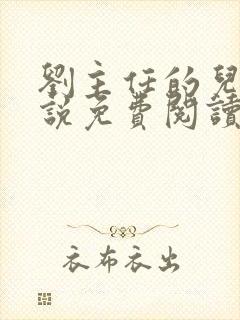 劉主任的兒
說免費閱讀
衣布衣出